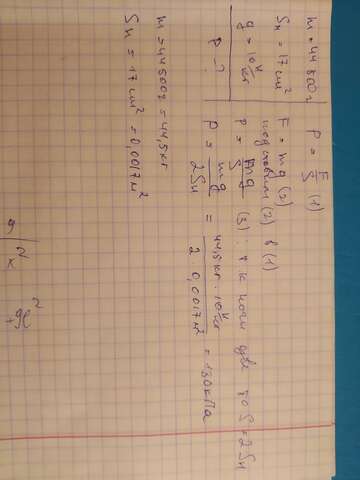 m = 44 500 г
Sн = 17 см²
g = 10 Н/кг
P - ?
P = F/S (1)
F = mg (2)
подставим (2) в (1)
P = mg/S (3) : т к ноги две то S = 2Sн
P = mg/2Sн = 44,5 кг · 10 Н/кг / 2 0,0017 м² = 130 кПа
m = 44500 г = 44,5 кг
Sн = 17 см² = 0,0017 м²